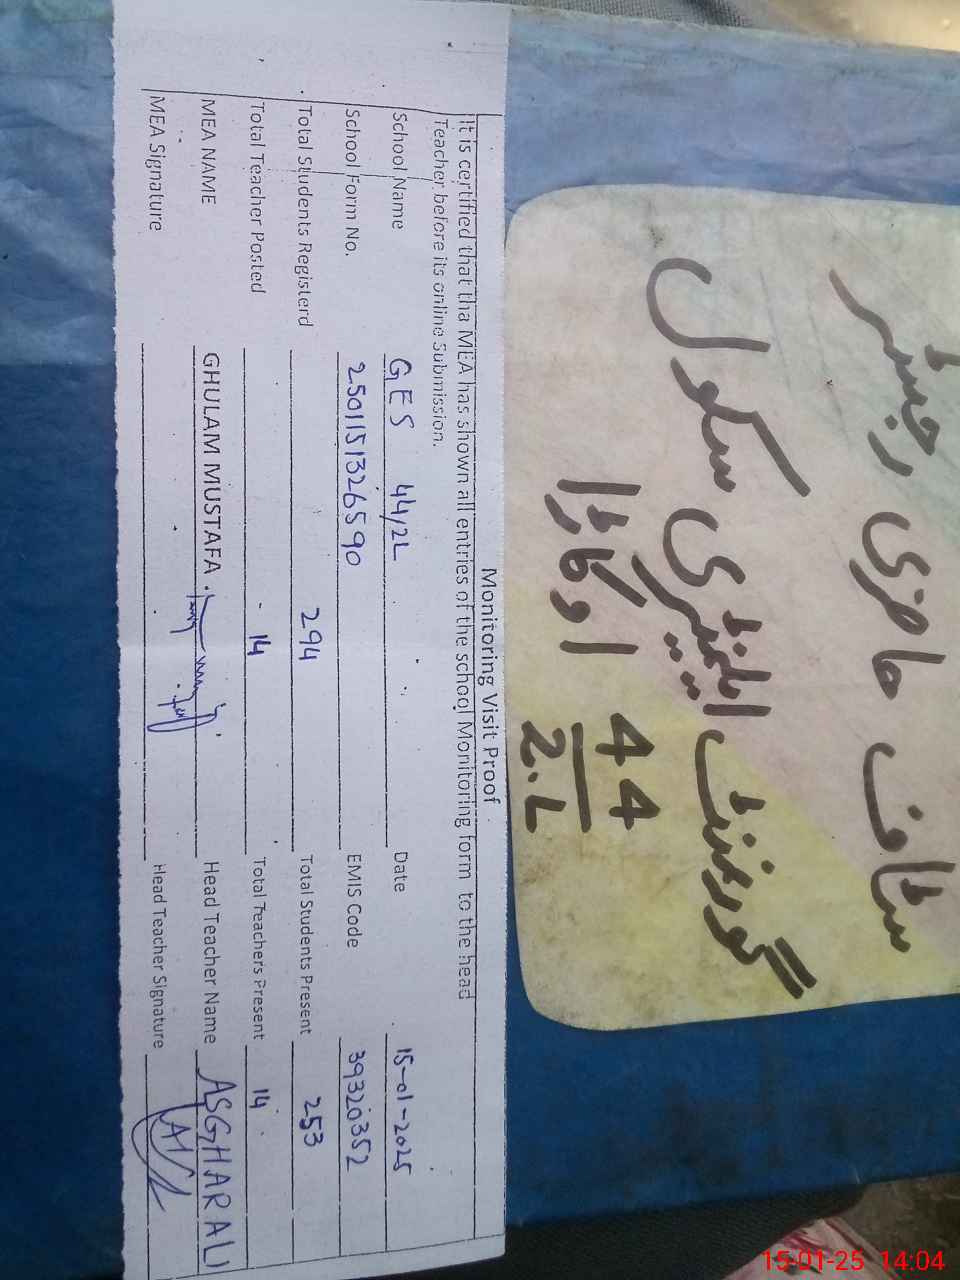 سٹاف حاضری رجسٹر
گورنمنٹ ایلیمنٹری سکول
44
2.L اوکاڑا
Monitoring Visit Proof
It is certified that tha MEA has shown all entries of the school Monitoring form to the head
Teacher before its online Submission.
School Name GES 44/2L Date 15-01-2025
School Form No. 2501151326590 EMIS Code 39320352
Total Students Registerd 294 Total Students Present 253
Total Teacher Posted 14 Total Teachers Present 14
MEA NAME GHULAM MUSTAFA Head Teacher Name ASGHAR ALI
MEA Signature Head Teacher Signature
15-01-25 14:04